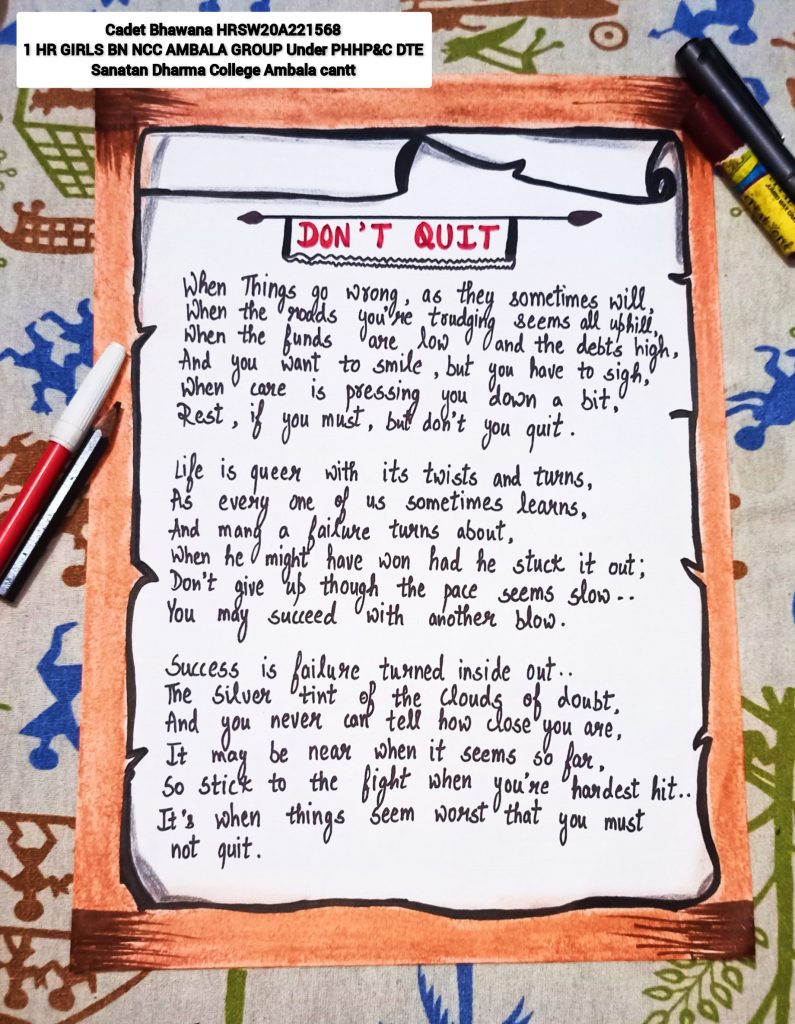 Cadet Bhawana HRSW20A221568
1 HR GIRLS BN NCC AMBALA GROUP Under PHHP&C DTE
Sanatan Dharma College Ambala cantt
DON'T QUIT
When Things go wrong, as they sometimes will,
When the roads you're trudging seems all uphill,
When the funds are low and the debts high,
And you want to smile, but you have to sigh,
When care is pressing you down a bit,
Rest, if you must, but don't you quit.
Life is queer with its twists and turns,
As every one of us sometimes learns,
And many a failure turns about,
When he might have won had he stuck it out;
Don't give up though the pace seems slow--
You may succeed with another blow.
Success is failure turned inside out..
The silver tint of the clouds of doubt,
And you never can tell how close you are,
It may be near when it seems so far,
So stick to the fight when you're hardest hit..
It's when things seem worst that you must
not quit.